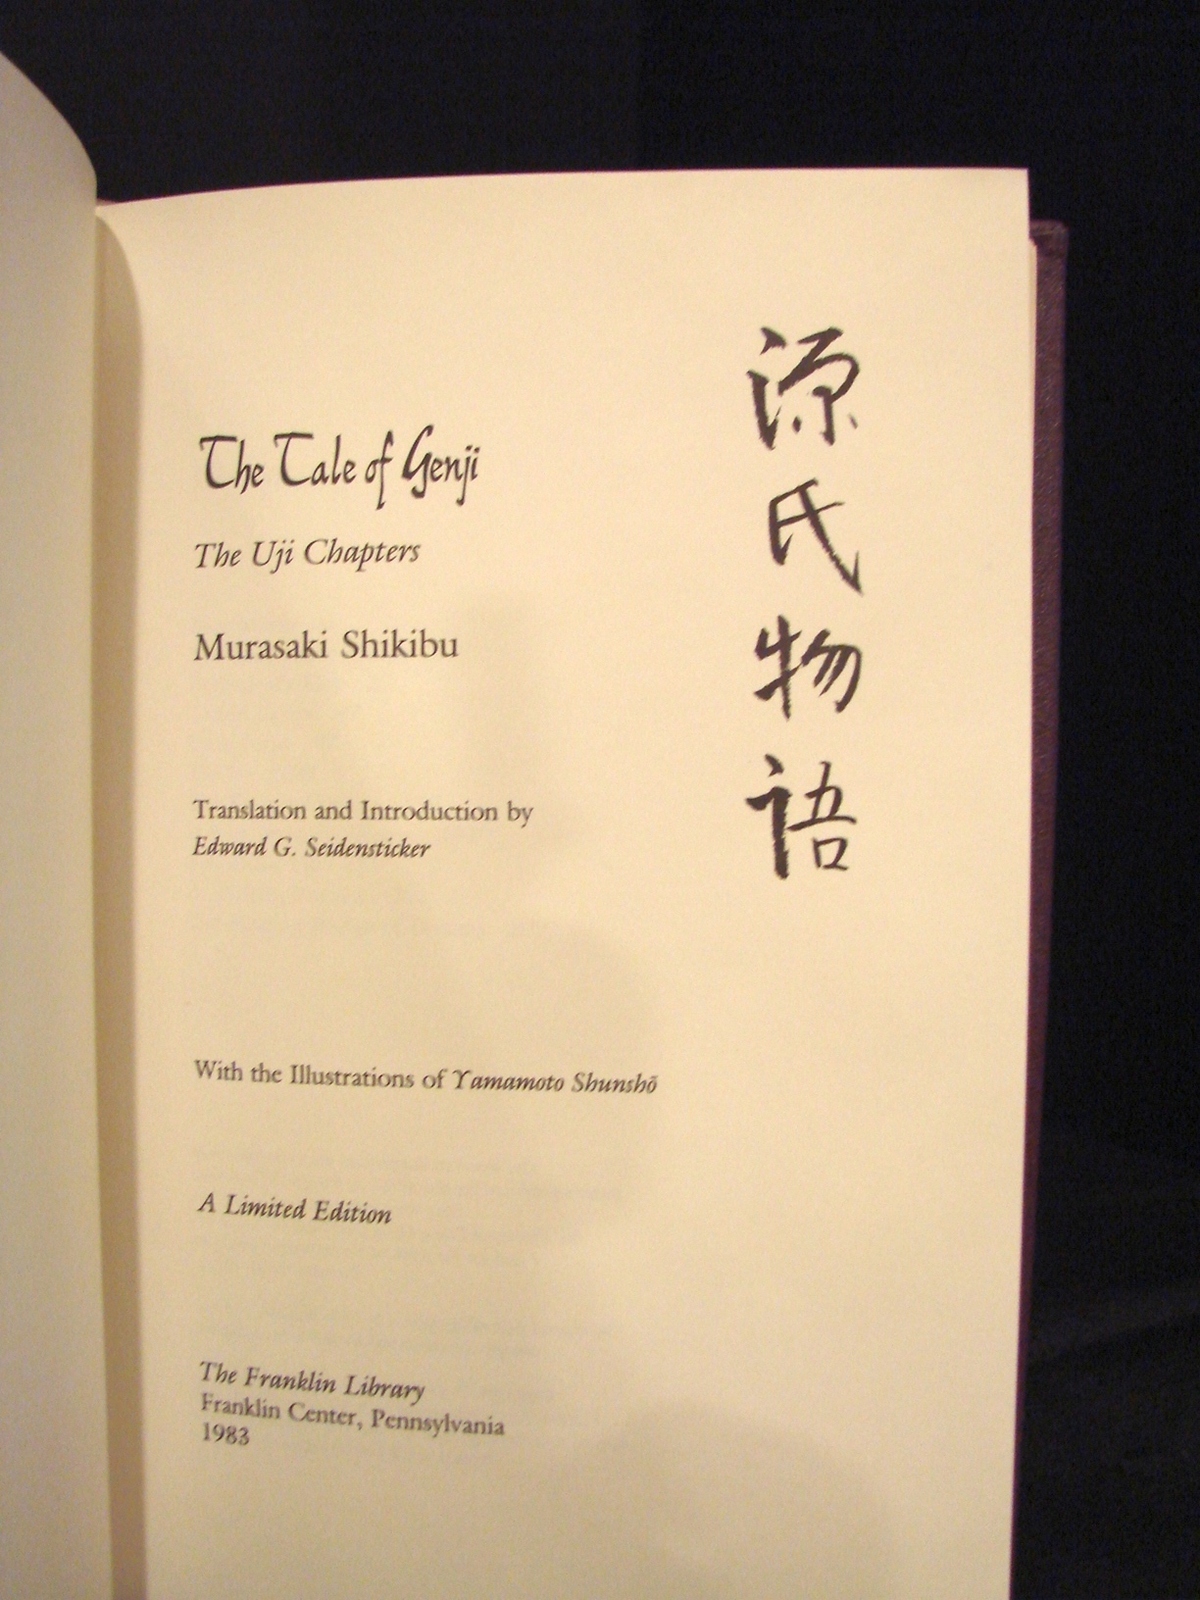 The Tale of Genji
The Uji Chapters
Murasaki Shikibu
Translation and Introduction by
Edward G. Seidensticker
With the Illustrations of Yamamoto Shunshō
A Limited Edition
The Franklin Library
Franklin Center, Pennsylvania
1983
源氏物語